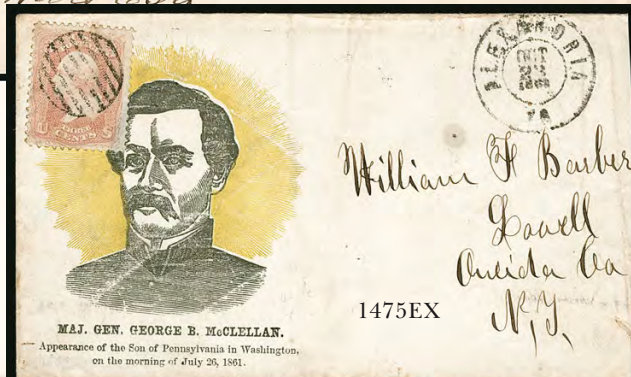 THREE
CENTS
ALEXANDRIA
OCT
VA
William H Barber
Lowell
Oneida Co
N.Y.
1475EX
MAJ. GEN. GEORGE B. McCLELLAN.
Appearance of the Son of Pennsylvania in Washington,
on the morning of July 26, 1861.